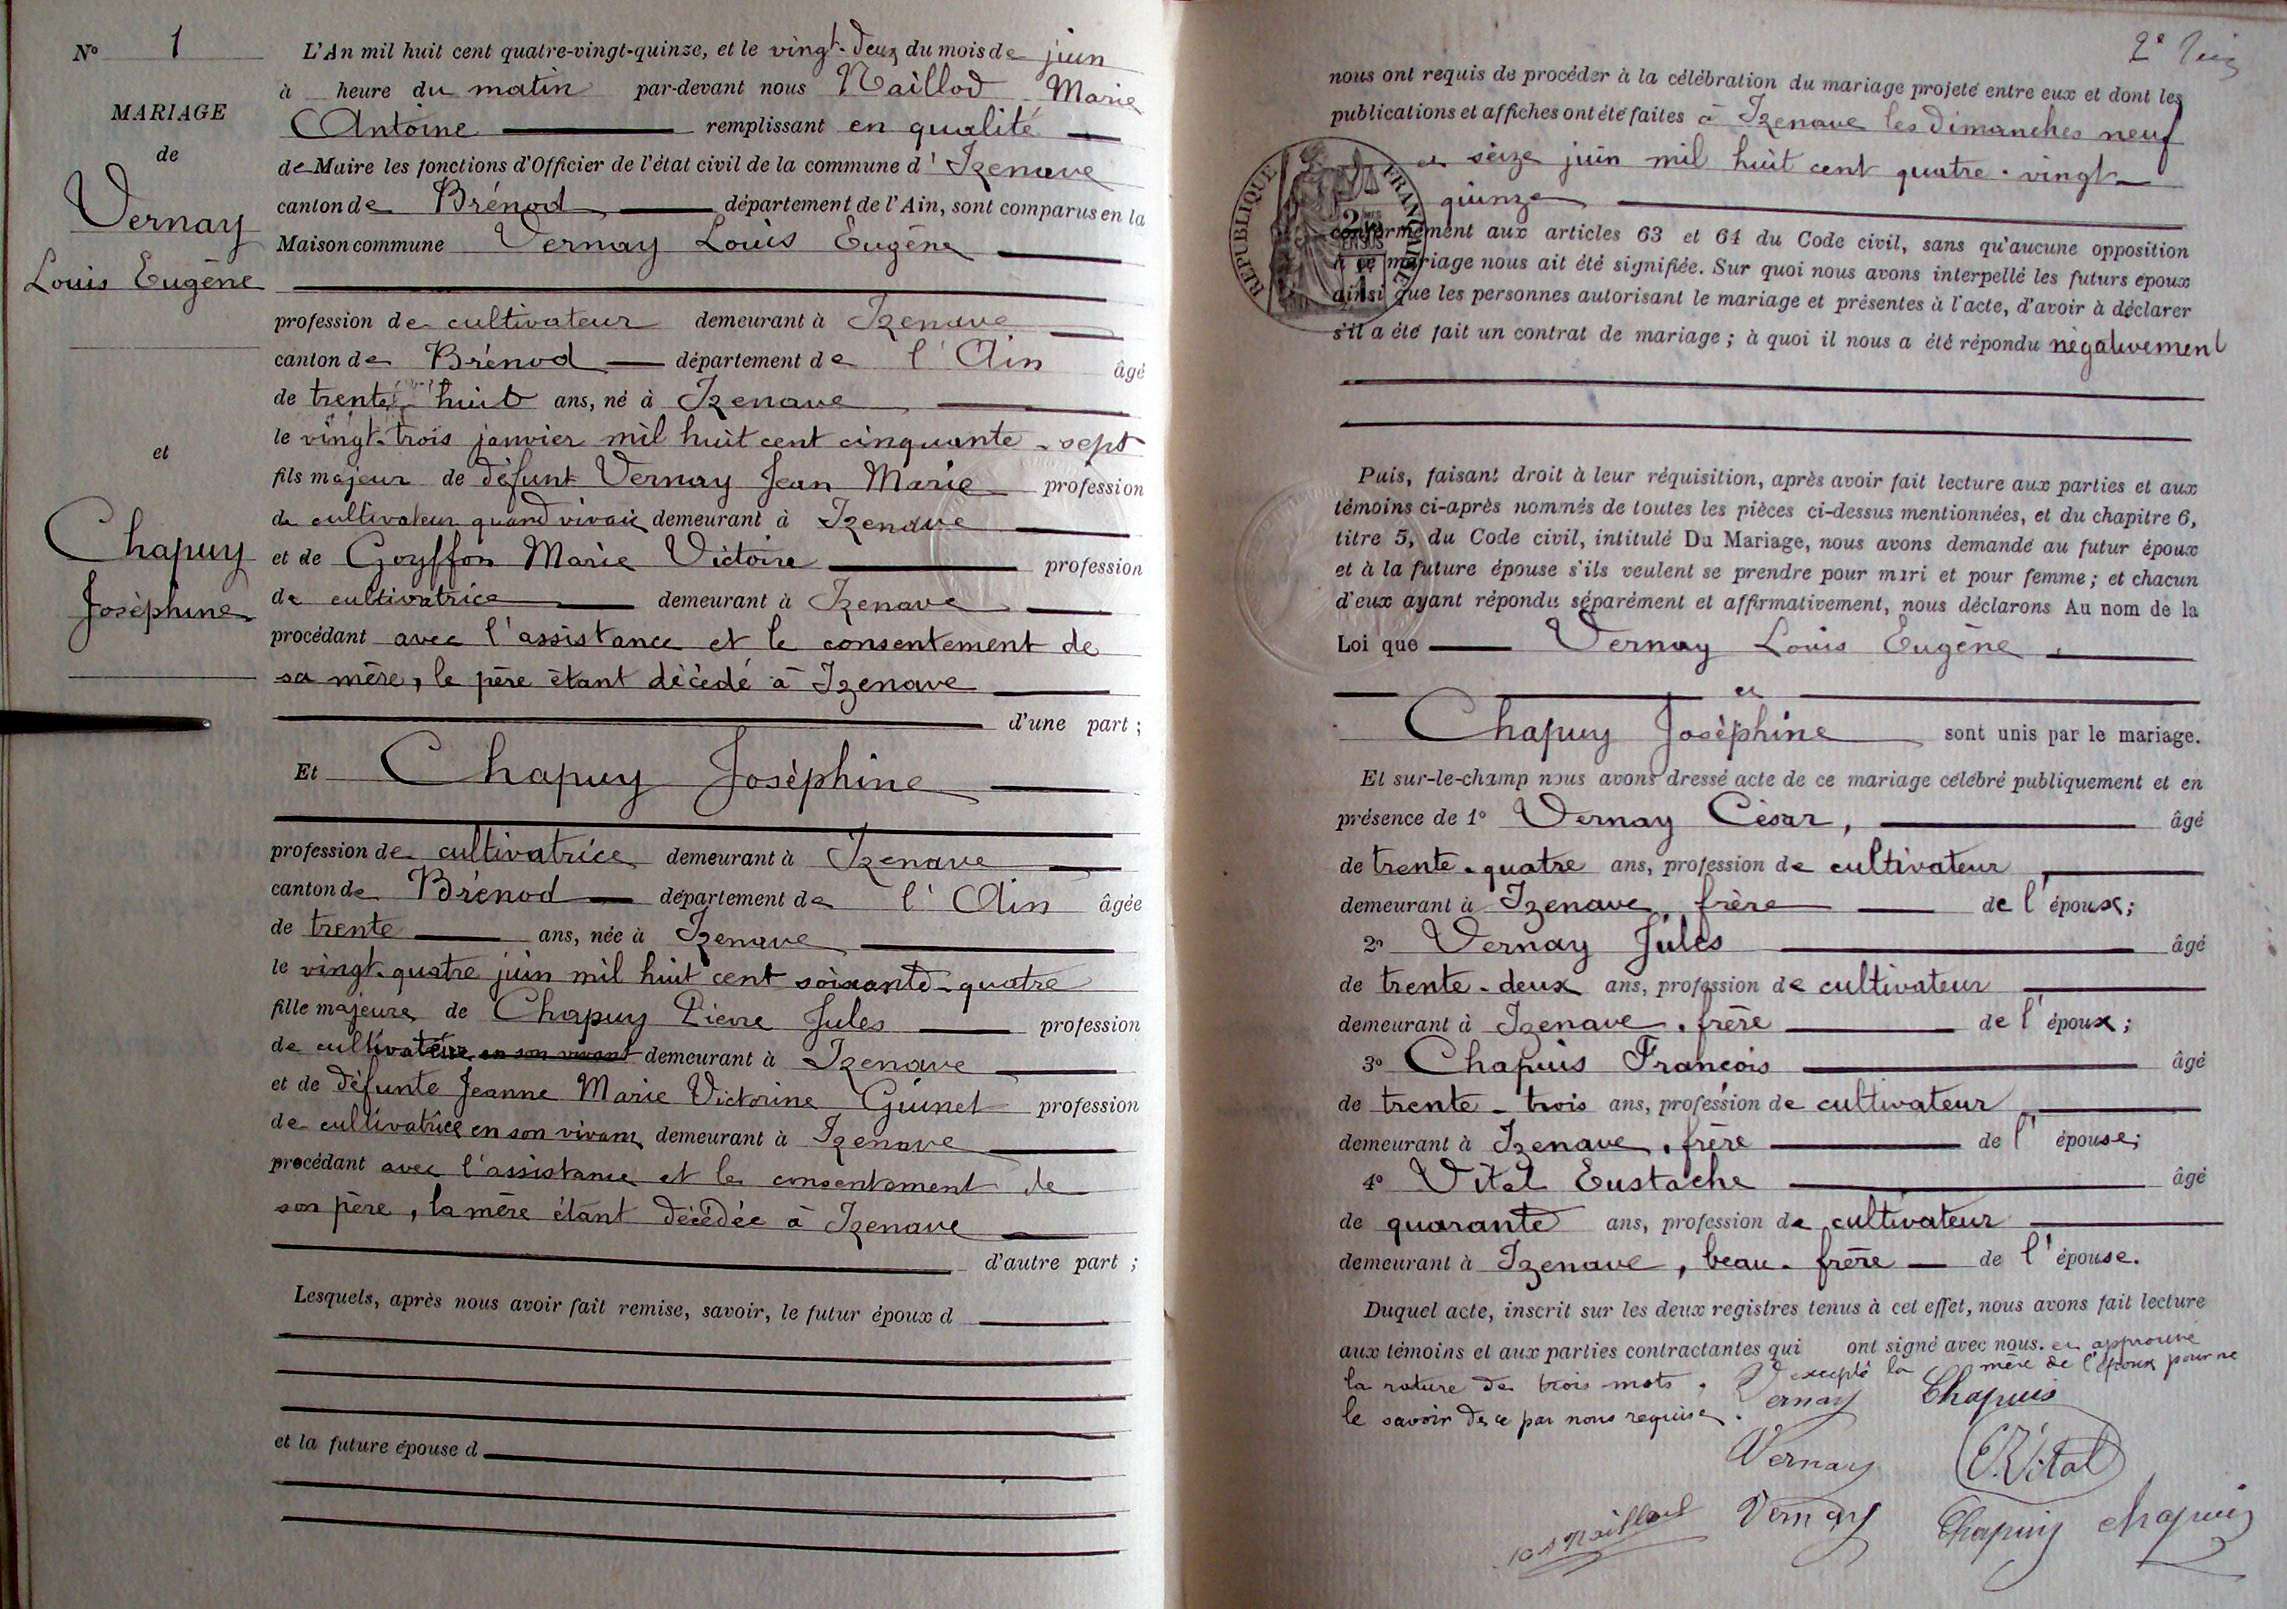 N° 1
MARIAGE
de
Vernay
Louis Eugène
et
Chapuy
Joséphine
L'An mil huit cent quatre-vingt-quinze, et le vingt-deux du mois de juin
à heure du matin par-devant nous Maillod Marie
Antoine remplissant en qualité
de Maire les fonctions d'Officier de l'état civil de la commune d'Izenave
canton de Brénod département de l'Ain, sont comparus en la
Maison commune Vernay Louis Eugène
profession de cultivateur demeurant à Izenave
canton de Brénod département de l'Ain âgé
de trente-huit ans, né à Izenave
le vingt-trois janvier mil huit cent cinquante-sept
fils majeur de défunt Vernay Jean Marie profession
de cultivateur quand vivait demeurant à Izenave
et de Goyffon Marie Victoire profession
de cultivatrice demeurant à Izenave
procédant avec l'assistance et le consentement de
sa mère, le père étant décédé à Izenave
d'une part ;
Et Chapuy Joséphine
profession de cultivatrice demeurant à Izenave
canton de Brénod département de l'Ain âgée
de trente ans, née à Izenave
le vingt-quatre juin mil huit cent soixante-quatre
fille majeure de Chapuy Pierre Jules profession
de cultivateur en son vivant demeurant à Izenave
et de défunte Jeanne Marie Victorine Guinet profession
de cultivatrice en son vivant demeurant à Izenave
procédant avec l'assistance et le consentement de
son père, la mère étant décédée à Izenave
d'autre part ;
Lesquels, après nous avoir fait remise, savoir, le futur époux d
et la future épouse d
nous ont requis de procéder à la célébration du mariage projeté entre eux et dont les
publications et affiches ont été faites à Izenave les dimanches neuf
et seize juin mil huit cent quatre-vingt
quinze
RÉPUBLIQUE FRANÇAISE
conformément aux articles 63 et 64 du Code civil, sans qu'aucune opposition
à ce mariage nous ait été signifiée. Sur quoi nous avons interpellé les futurs époux
ainsi que les personnes autorisant le mariage et présentes à l'acte, d'avoir à déclarer
s'il a été fait un contrat de mariage ; à quoi il nous a été répondu négativement
Puis, faisant droit à leur réquisition, après avoir fait lecture aux parties et aux
témoins ci-après nommés de toutes les pièces ci-dessus mentionnées, et du chapitre 6,
titre 5, du Code civil, intitulé Du Mariage, nous avons demandé au futur époux
et à la future épouse s'ils veulent se prendre pour mari et pour femme ; et chacun
d'eux ayant répondu séparément et affirmativement, nous déclarons Au nom de la
Loi que Vernay Louis Eugène
et
Chapuy Joséphine sont unis par le mariage.
Et sur-le-champ nous avons dressé acte de ce mariage célébré publiquement et en
présence de 1° Vernay César, âgé
de trente-quatre ans, profession de cultivateur
demeurant à Izenave, frère de l'époux ;
2° Vernay Jules âgé
de trente-deux ans, profession de cultivateur
demeurant à Izenave, frère de l'époux ;
3° Chapuis François âgé
de trente-trois ans, profession de cultivateur
demeurant à Izenave, frère de l'épouse ;
4° Vital Eustache âgé
de quarante ans, profession de cultivateur
demeurant à Izenave, beau-frère de l'épouse.
Duquel acte, inscrit sur les deux registres tenus à cet effet, nous avons fait lecture
aux témoins et aux parties contractantes qui ont signé avec nous. et approuvé
la rature de trois mots. excepté la mère de l'époux pour ne
le savoir de ce par nous requise.
Vernay Chapuis
Vernay E. Vital
Maillod Vernay Chapuy Chapuis